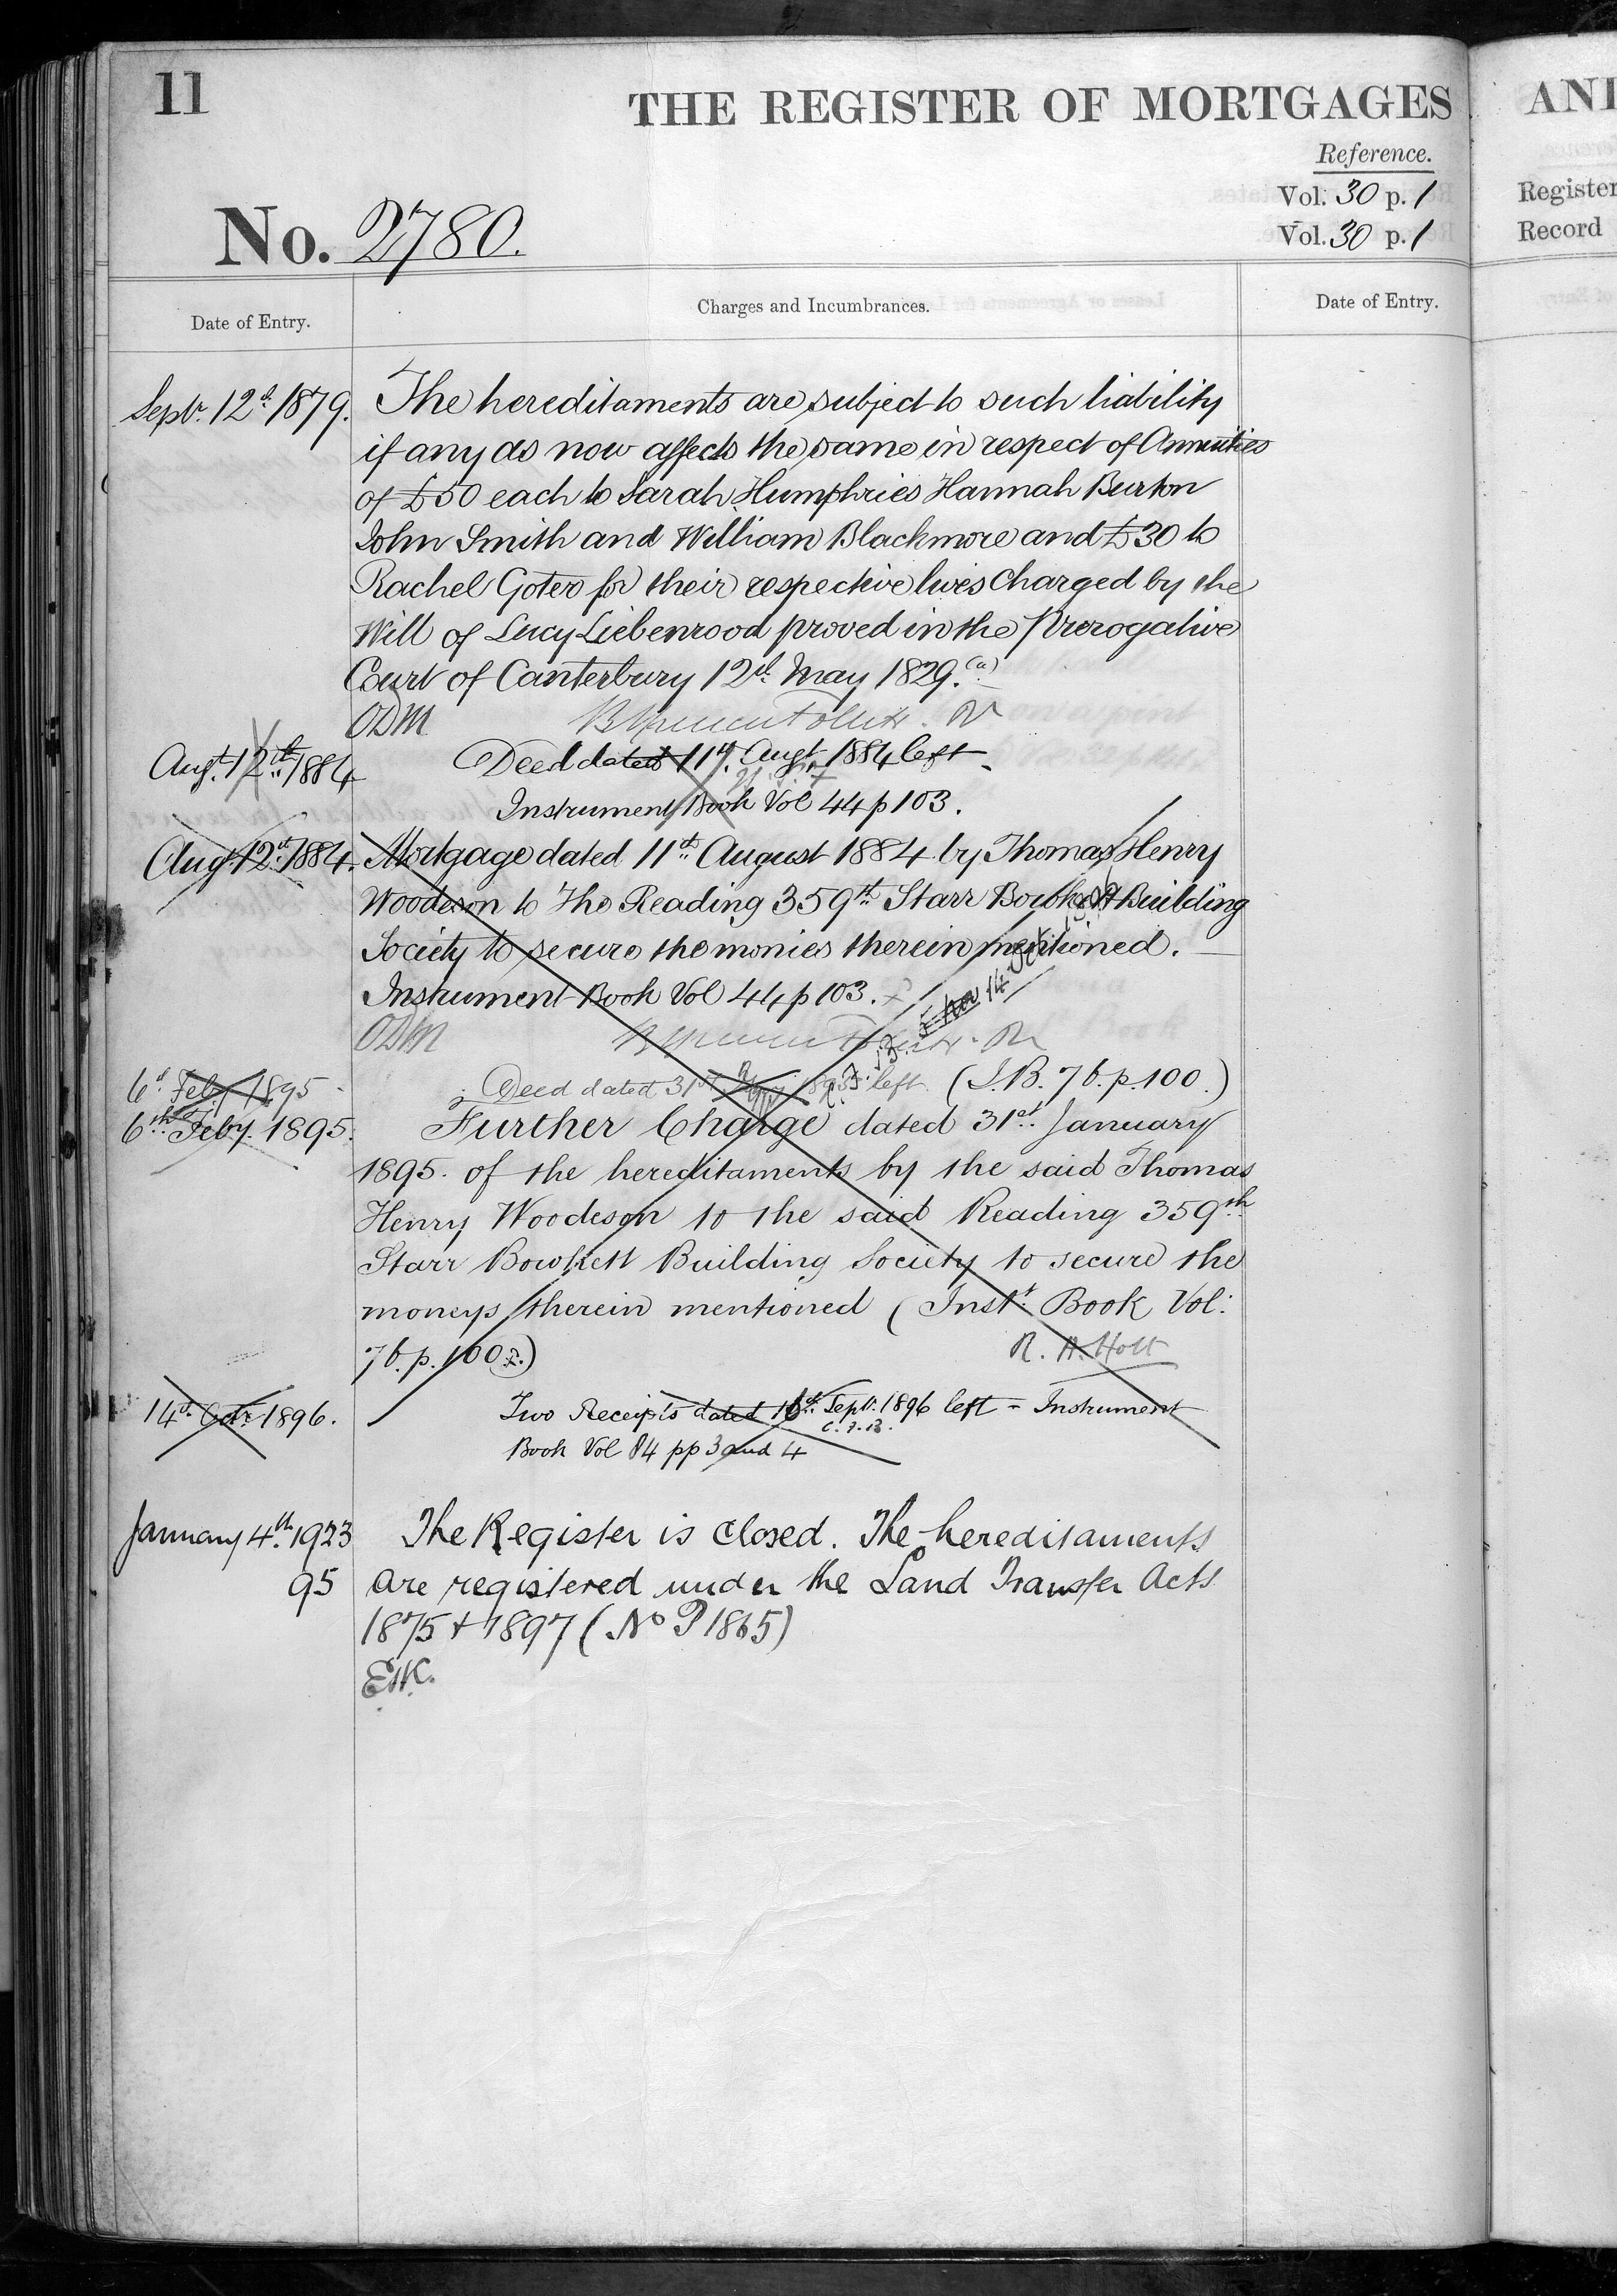 11
THE REGISTER OF MORTGAGES
Reference.
Vol. 30 p. 1
No. 2780.
Vol. 30 p. 1
Date of Entry.
Charges and Incumbrances.
Date of Entry.
Septr. 12th 1879.
The hereditaments are subject to such liability
if any as now affects the same in respect of Annuities
of £50 each to Sarah Humphries Hannah Burton
John Smith and William Blackmore and £30 to
Rachel Goter for their respective lives charged by the
Will of Lucy Liebenrood proved in the Prerogative
Court of Canterbury 12th May 1829. (a)
ODM
Augt. 12th 1884
Deed dated 11th Augt 1884 left
Instrument Book Vol 44 p 103.
Augt 12th 1884.
Mortgage dated 11th August 1884 by Thomas Henry
Woodeson to The Reading 359th Starr Bowkett Building
Society to secure the monies therein mentioned.
Instrument Book Vol 44 p 103.
ODM
6th Feby 1895
Deed dated 31st 1895 left (I.B. 76. p. 100.)
6th Feby. 1895.
Further Charge dated 31st January
1895. of the hereditaments by the said Thomas
Henry Woodeson to the said Reading 359th
Starr Bowkett Building Society to secure the
moneys therein mentioned (Inst. Book Vol:
76. p. 100)
R. A. Holt
14th Octr 1896.
Two Receipts dated 16th Septr. 1896 left = Instrument
Book Vol 84 pp 3 and 4
January 4th. 1923
The Register is closed. The hereditaments
95
are registered under the Land Transfer Acts
1875 + 1897 (No P 1865)
ANI
Register
Record